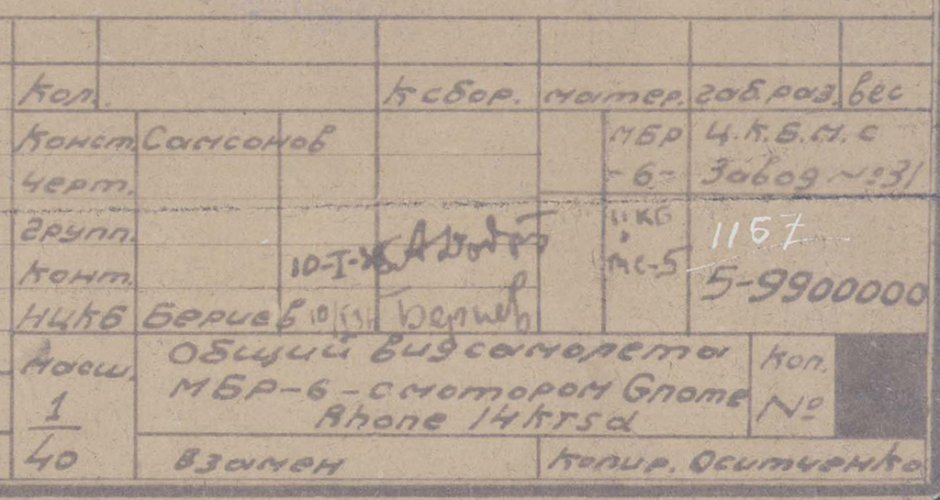 Кол. К сбор. матер. габ.раз. вес
Конст. Самсонов МБР Ц.К.Б.М.С
Черт. -6- Завод №31
Групп. ЦКБ 1157
Конт. 10-I-3 мс-5 5-9900000
НЦКБ Бериев Бериев
Масш. Общий вид самолета Коп.
1 МБР-6-с мотором Gnome №
40 Rhone 14krsd
Взамен Копир. Оситченко